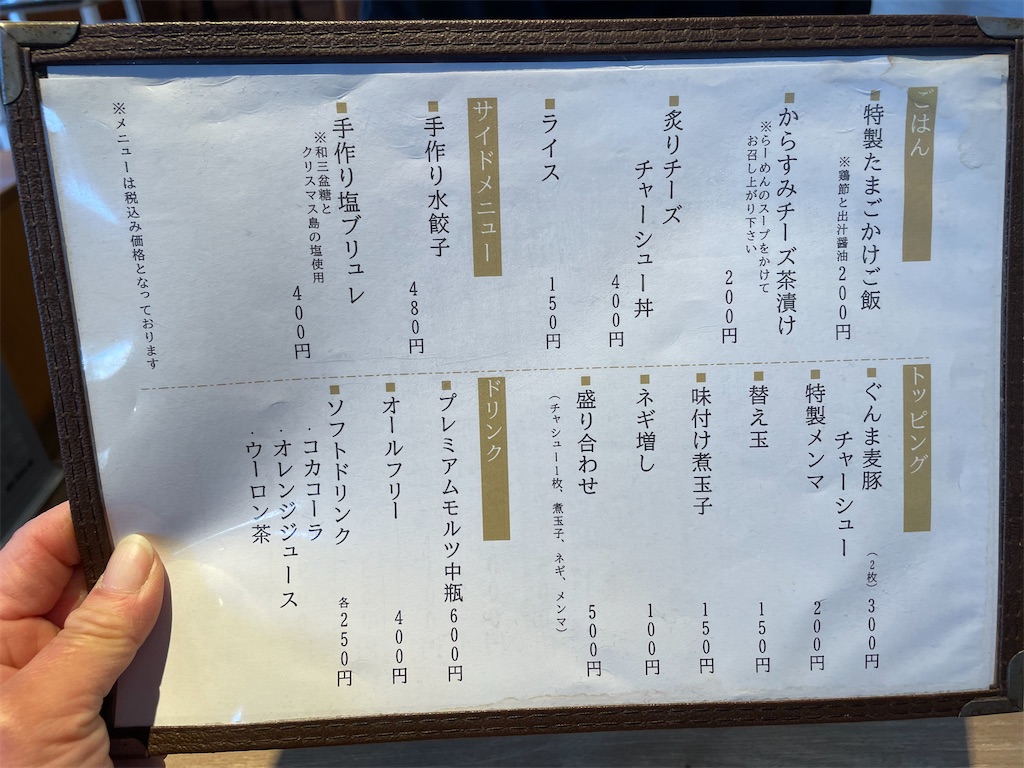 ごはん
特製たまごかけご飯
※鶏節と出汁醤油
200円
からすみチーズ茶漬け
※らーめんのスープをかけて
お召し上がり下さい
200円
炙りチーズ
チャーシュー丼
400円
ライス
150円
サイドメニュー
手作り水餃子
480円
手作り塩ブリュレ
※和三盆糖と
クリスマス島の塩使用
400円
※メニューは税込み価格となっております
トッピング
ぐんま麦豚
チャーシュー
(2枚)300円
特製メンマ
200円
替え玉
150円
味付け煮玉子
150円
ネギ増し
100円
盛り合わせ
500円
(チャシュー1枚、煮玉子、ネギ、メンマ)
ドリンク
プレミアムモルツ中瓶
600円
オールフリー
400円
ソフトドリンク
各250円
・コカコーラ
・オレンジジュース
・ウーロン茶